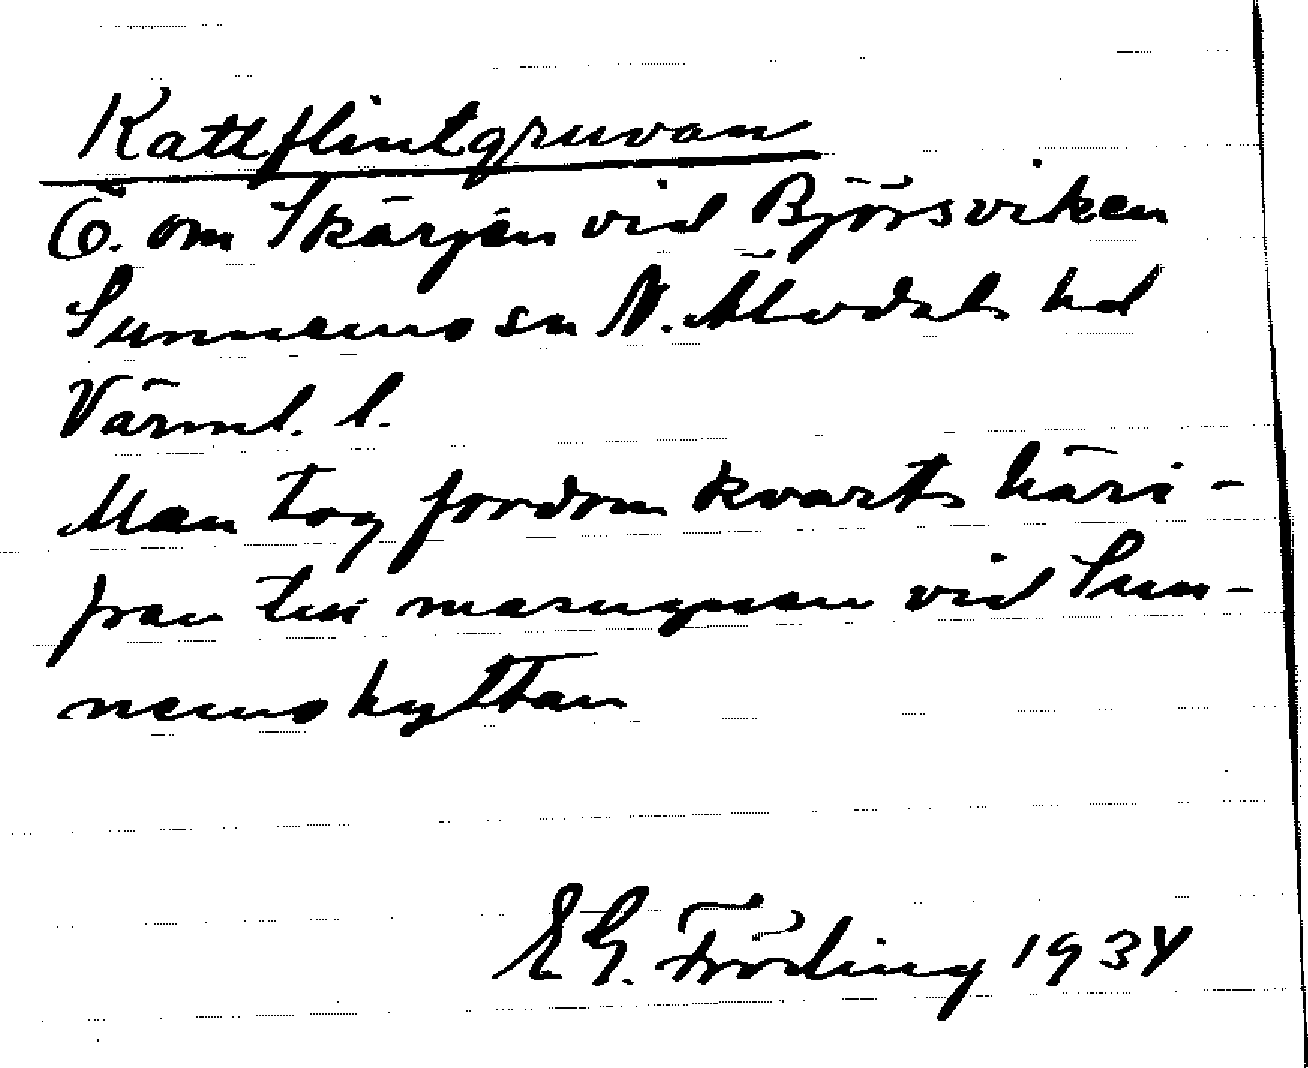 Kattflintgruvan
Ö. om Skärjen vid Björsviken
Sunnemo sn N. Älvdals hd
Värml. l.
Man tog fordom kvarts häri-
från till masugnen vid Sun-
nemohyttan
E G. Fröding 1934